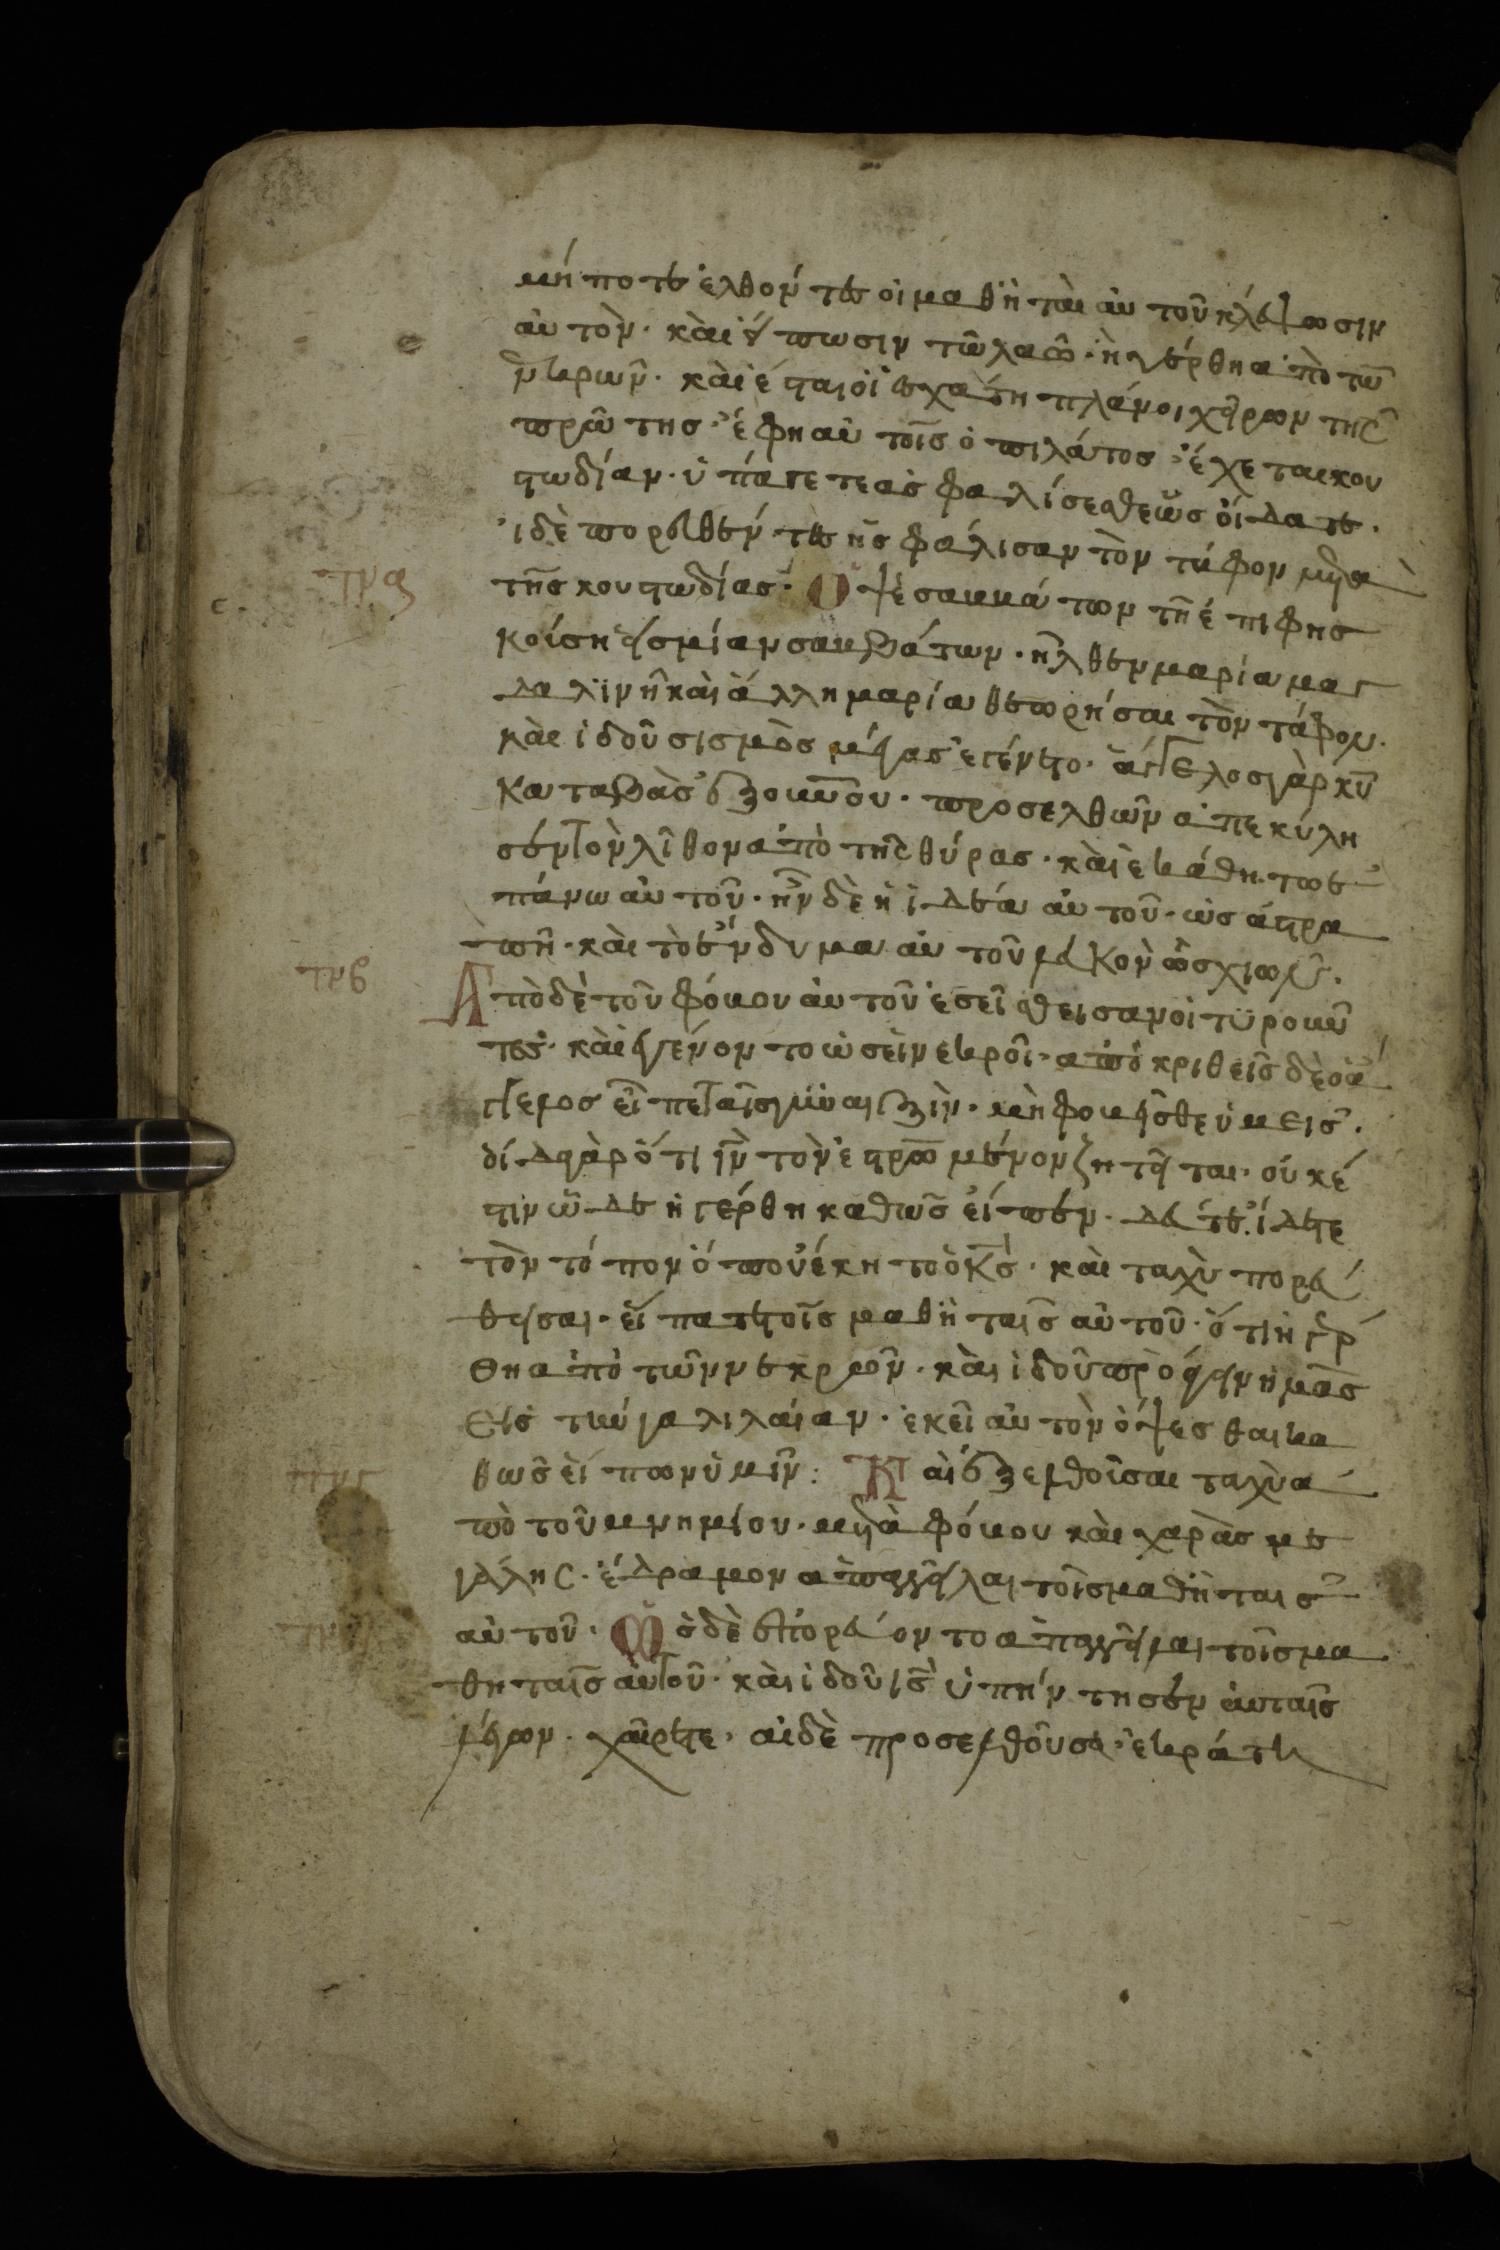 μήποτε ἐλθόντες οἱ μαθηταὶ αὐτοῦ κλέψωσιν
αὐτόν· καὶ εἴπωσιν τῶ λαῶ· ἠγέρθη ἀπὸ τῶν
νεκρων· καὶ ἔσται οἱ ἐσχάτη πλάνοι χεῖρον τῆς
πρώτης· ἔφη αὐτοῖς ὁ πιλάτος· ἔχεται κου
στωδίαν· ὑπάγετε ἀσφαλίσεσθε ὡς οἴδατε·
ἱ δὲ πορευθέντες ἠσφάλισαν τὸν τάφον μετὰ
τῆς κουστωδίας· Ὀψὲ σαββάτων τῆ ἐπιφησ
κούση εἰς μίαν σαββάτων· ἦλθεν μαρία μαγ
δαλινῆ καὶ ἄλλη μαρία θεωρήσαι τὸν τάφον·
καὶ ἰδοῦ σισμὸς μέγας ἐγένετο· ἄγγελος γὰρ κυ
καταβὰς ἐξ οὐνου· προσελθῶν ἀπεκύλη
σεν τὸν λῖθον ἀπὸ τῆς θύρας· καὶ ἐκάθητο ἐ
πάνω αὐτοῦ· ἦν δὲ ἡ ἰδέα αὐτοῦ· ὡς ἀστρα
πῆ· καὶ τὸ ἔνδυμα αὐτοῦ λευκὸν ὡς χιων·
Ἀπὸ δὲ τοῦ φόβου αὐτοῦ ἐσεῖσθεισαν οἱ τυροῦν
τες· καὶ ἐγένοντο ὡσεὶ νεκροῖ· ἀποκριθεῖς δὲ ὁ ἄγ
γελος εἶπε ταῖς γυναιξὶν· μὴ φοβεῖσθε ὑμεις·
οἶδα γὰρ ὅτι ιν τὸν ἐστρωμένον ζητεῖται· οὐκ ἔ
στιν ὧδε ἠγέρθη καθὼς εἶπεν· δεῦτε ἴδετε
τὸν τόπον ὅπου ἔκητο ὁ κς· καὶ ταχὺ πορευ
θεῖσαι· εἴπατε τοῖς μαθηταις αὐτοῦ· ὅτι ἠγέρ
θη ἀπὸ τῶν νεκρῶν· καὶ ἰδοῦ προάγει ἡμᾶς
εἰς τὴν γαλιλαίαν· ἐκεῖ αὐτὸν ὄψεσθαι κα
θὼς εἶπον ὑμῖν: Καὶ ἐξελθοῦσαι ταχὺ ἀ
πὸ τοῦ μνημίου· μετὰ φόβου καὶ χαρὰς με
γάλης· ἔδραμον ἀπαγγεῖλαι τοῖς μαθηταις
αὐτοῦ· Ὡς δὲ ἐπορεύοντο ἀπαγγεῖλαι τοῖς μα
θηταῖς αὐτοῦ· καὶ ἰδοῦ ις ὑπήντησεν αὐταῖς
λέγων· χαῖρετε· αἱ δὲ προσελθοῦσαι ἐκράτη